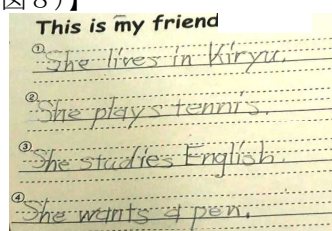 図8)】
This is my friend
① She lives in Kiryu.
② She plays tennis.
③ She studies English.
④ She wants a pen.